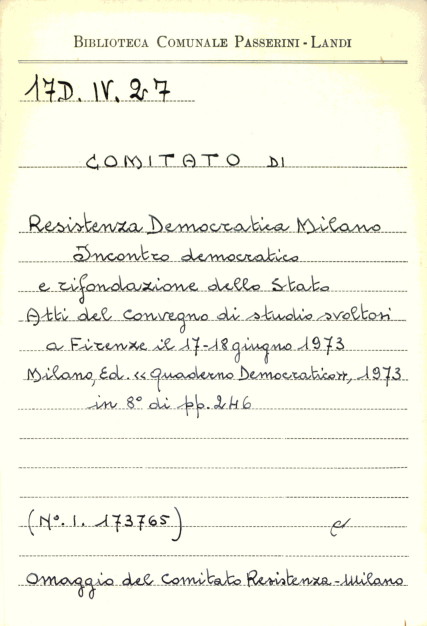 BIBLIOTECA COMUNALE PASSERINI - LANDI
17D. IV. 27
COMITATO DI
Resistenza Democratica Milano
Incontro democratico
e rifondazione dello Stato
Atti del convegno di studio svoltosi
a Firenze il 17-18 giugno 1973
Milano, Ed. «Quaderno Democratico», 1973
in 8° di pp. 246
(N°. I. 173765)
Omaggio del Comitato Resistenza - Milano